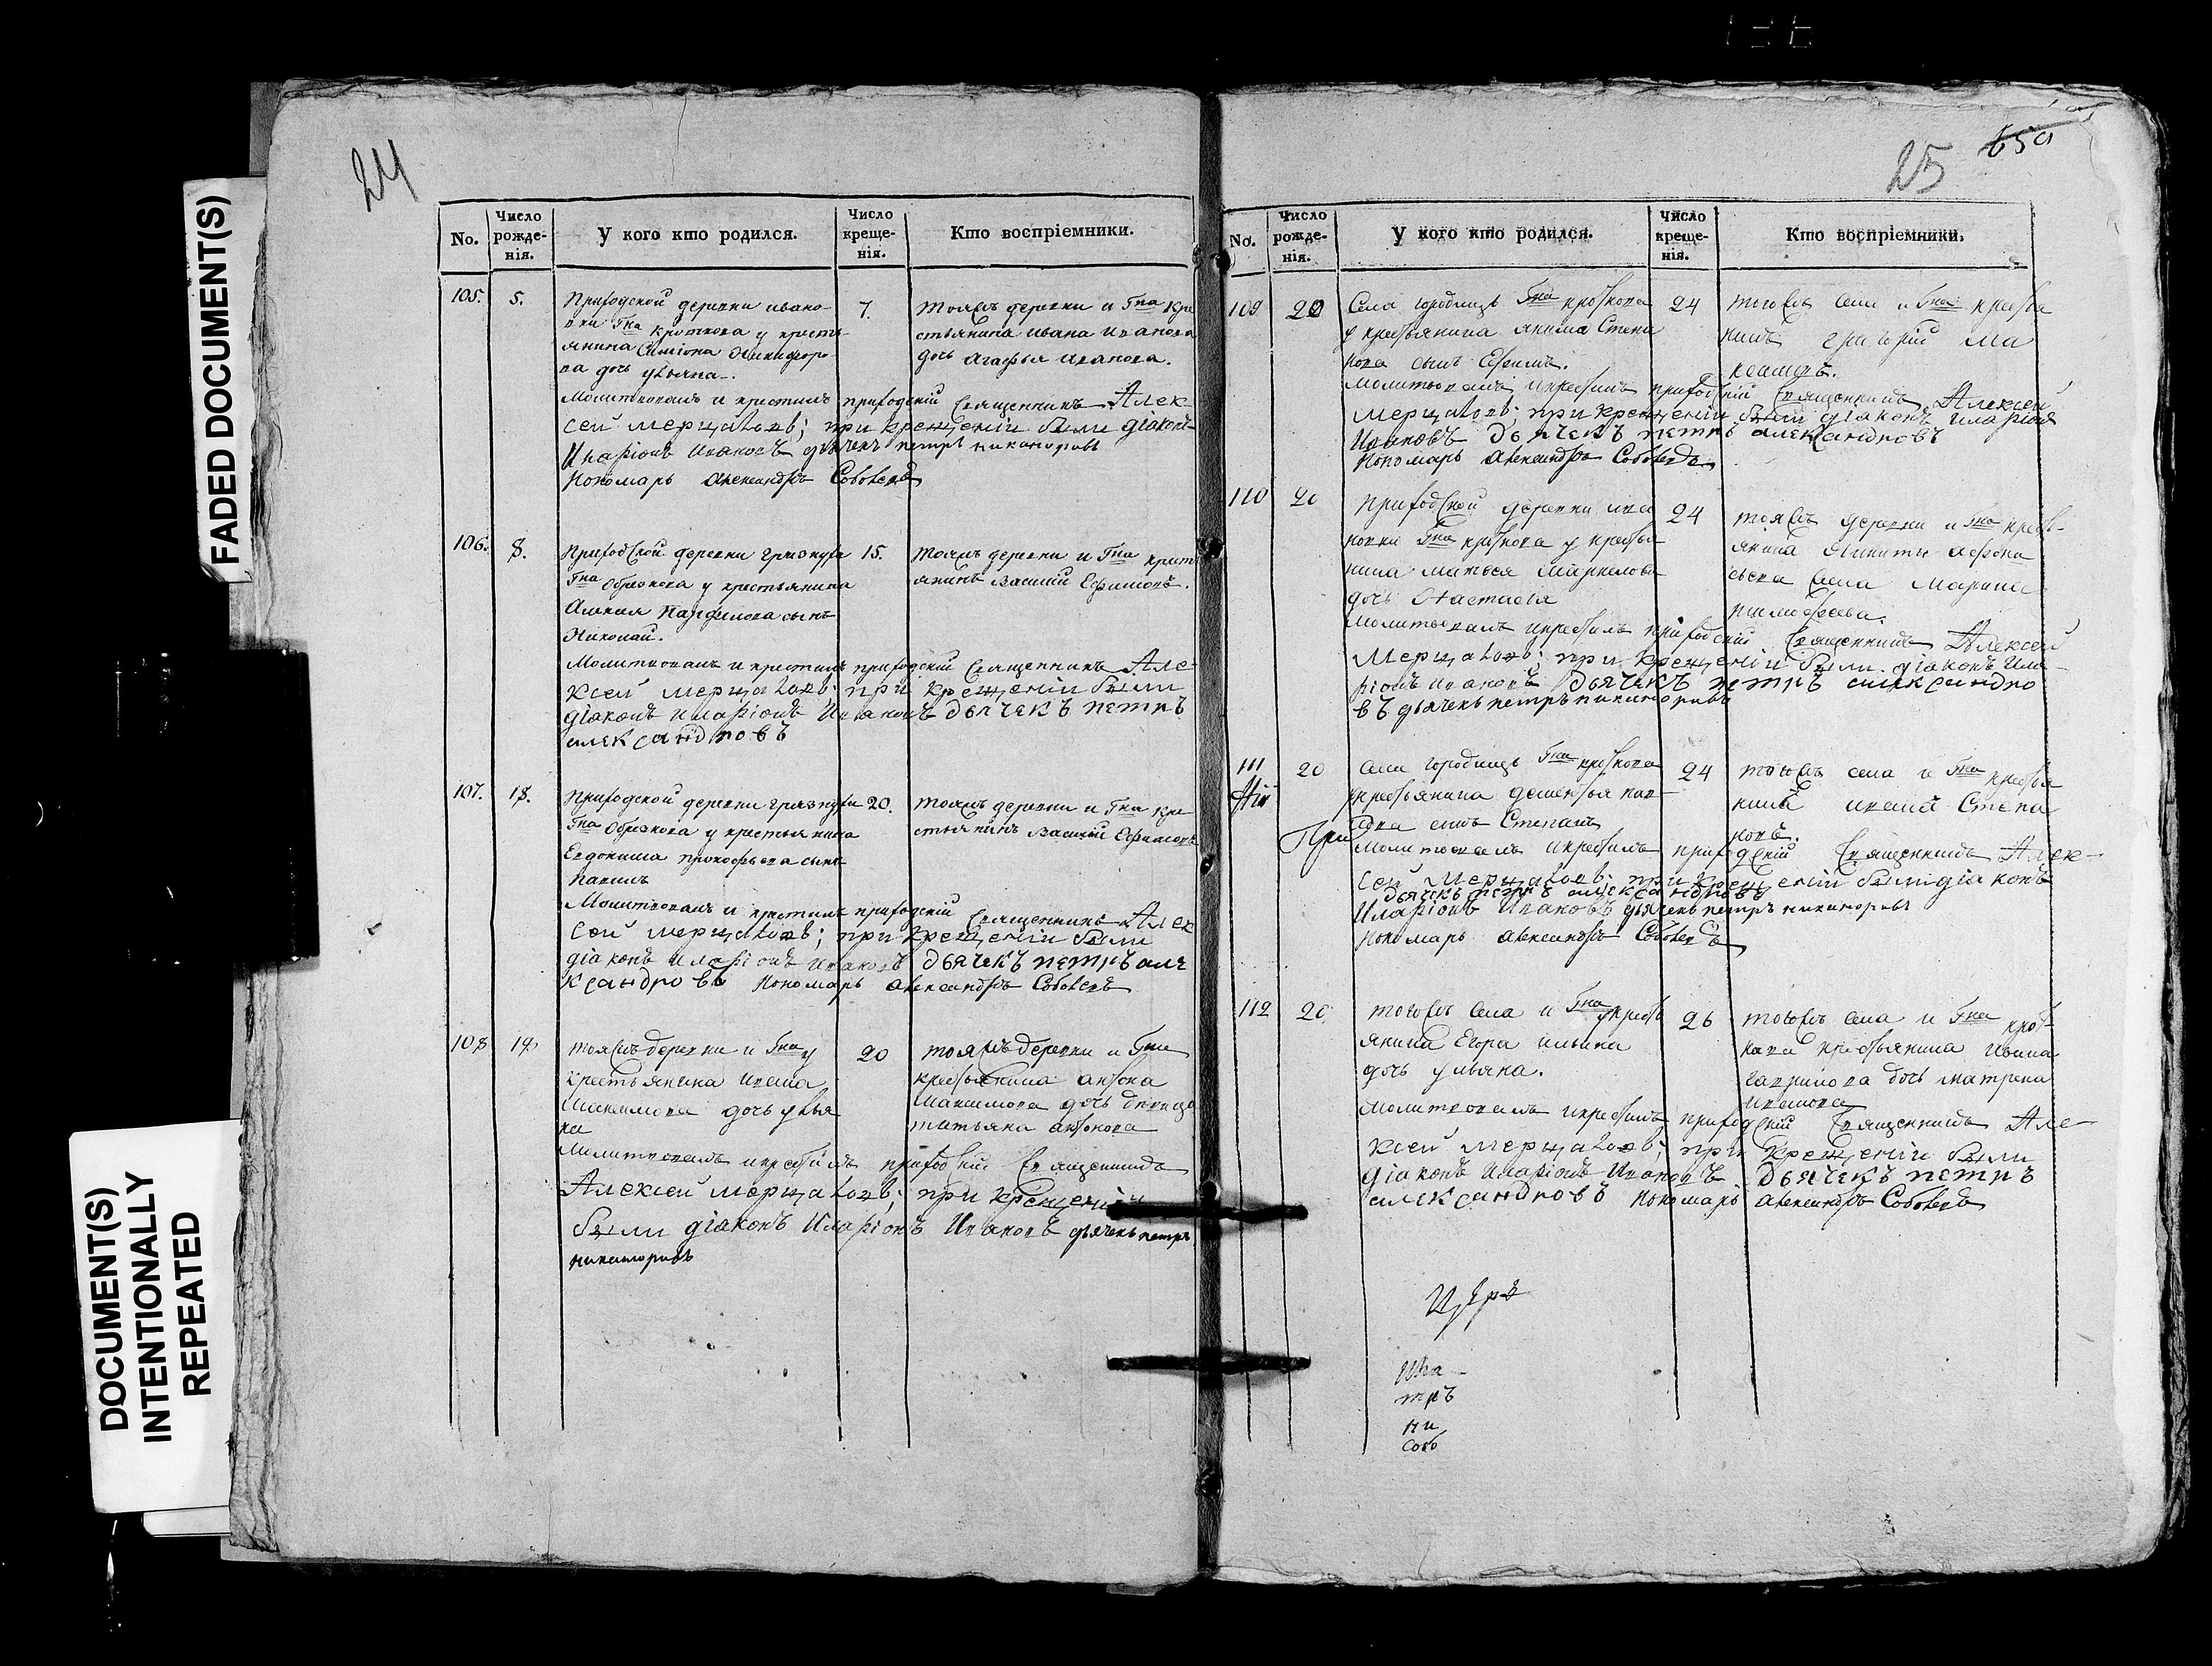 FADED DOCUMENT(S)
DOCUMENT(S)
INTENTIONALLY
REPEATED
24
No.
Число рожде-нія.
У кого кто родился.
Число креще-нія.
Кто воспріемники.
105.
5.
Приходской деревни ивано-
вки Гна кроткова у кресть
янина Симіона Никифоро
ва дочь ульяна.
7.
тояжъ деревни и Гна кре
стьянина ивана иванова
дочь агафья иванова.
Молитвовалъ и крестилъ приходскій Священникъ Алек
сей мерцаловъ; при крещеніи были діаконъ
Иларіонъ Ивановъ дьячекъ петръ никаноровъ
Пономарь александръ Соболевъ
106.
8.
Приходской деревни грязнухи
Гна образкова у крестьянина
Панфилова сынъ
Николай.
15.
тояжъ деревни и Гна крест
янинъ василий Ефимовъ.
Молитвовалъ и крестилъ приходскій Священникъ Але-
ксей мерцаловъ: при крещеніи были
діаконъ иларіонъ Ивановъ дьячекъ петръ
александровъ
107.
18.
Приходской деревни грязнухи
Гна образкова у крестьянина
Евдокима прокофьева сынъ
павелъ
20.
тояжъ деревни и Гна кре
стьянинъ василій Ефимовъ
Молитвовалъ и крестилъ приходскій Священникъ Алек
сей мерцаловъ; при крещеніи были
діаконъ иларіонъ ивановъ дьячекъ петръ але
ксандровъ пономарь александръ Соболевъ
108
18
тояжъ деревни и Гна у
крестьянина ивана
максимова дочь улья
на
20
тояжъ деревни и Гна
крестьянина антона
максимова дочь девица
татьяна антонова
Молитвовалъ и крестилъ приходскій Священникъ
Алексей мерцаловъ; при крещеніи
были діаконъ Иларіонъ Ивановъ дьячекъ петръ
никаноровъ
25
65а
No.
Число рожде-нія.
У кого кто родился.
Число креще-нія.
Кто воспріемники.
109
20
Села городищъ Гна кроткова
у крестьянина якима Степа
нова сынъ Ефимъ.
24
тогожъ села и Гна крестья
нинъ григорій ма
Молитвовалъ и крестилъ приходскій Священникъ Алексей
мерцаловъ; при крещеніи были діаконъ Иларіонъ
Ивановъ дьячекъ петръ александровъ
Пономарь александръ Соболевъ
110
20
приходской деревни ива
новки Гна кроткова у крестья
нина матвея
дочь Настасья
24
тояжъ деревни и Гна кресть-
янина Никиты афона
сьева жена Марина
Молитвовалъ и крестилъ приходскій Священникъ Алексей
Мерцаловъ; при крещеніи были діаконъ Ила-
ріонъ ивановъ дьячекъ петръ александро
въ дьячекъ петръ никаноровъ
111
20
села городищъ Гна кроткова
у крестьянина
сынъ Степанъ
24
тогожъ села и Гна крестья
нинъ иванъ Степа
новъ.
При
Молитвовалъ и крестилъ приходскій Священникъ Алек-
сей Мерцаловъ; при крещеніи были діаконъ
дьячекъ петръ александровъ
Иларіонъ Ивановъ дьячекъ петръ никаноровъ
Пономарь александръ Соболевъ
112
20
тогожъ села и Гна у кресть
янина Егора ильина
дочь ульяна.
26
тогожъ села и Гна крот-
кова крестьянина ивана
гаврилова дочь матрена
иванова
Молитвовалъ и крестилъ приходскій Священникъ Але-
ксей мерцаловъ; при крещеніи были
діаконъ Иларіонъ Ивановъ дьячекъ петръ
александровъ пономарь александръ Соболевъ
тръ
ни
собо